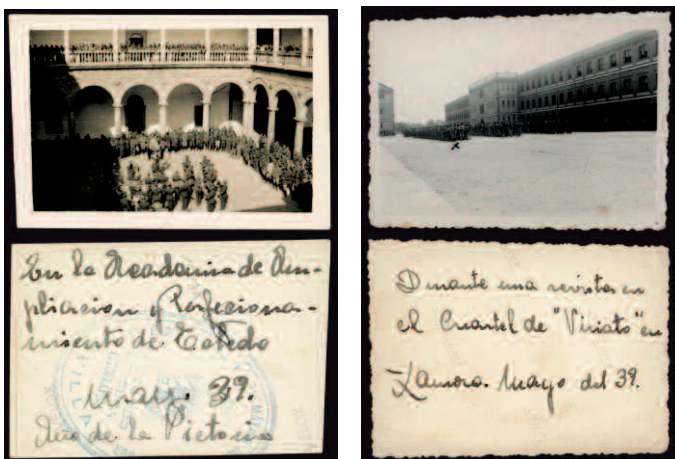 En la Academia de Am-
pliacion y Perfeciona-
miento de Toledo
may. 39.
Año de la Victoria
Durante una revista en
el Cuartel de "Viriato" en
Zamora. Mayo del 39.